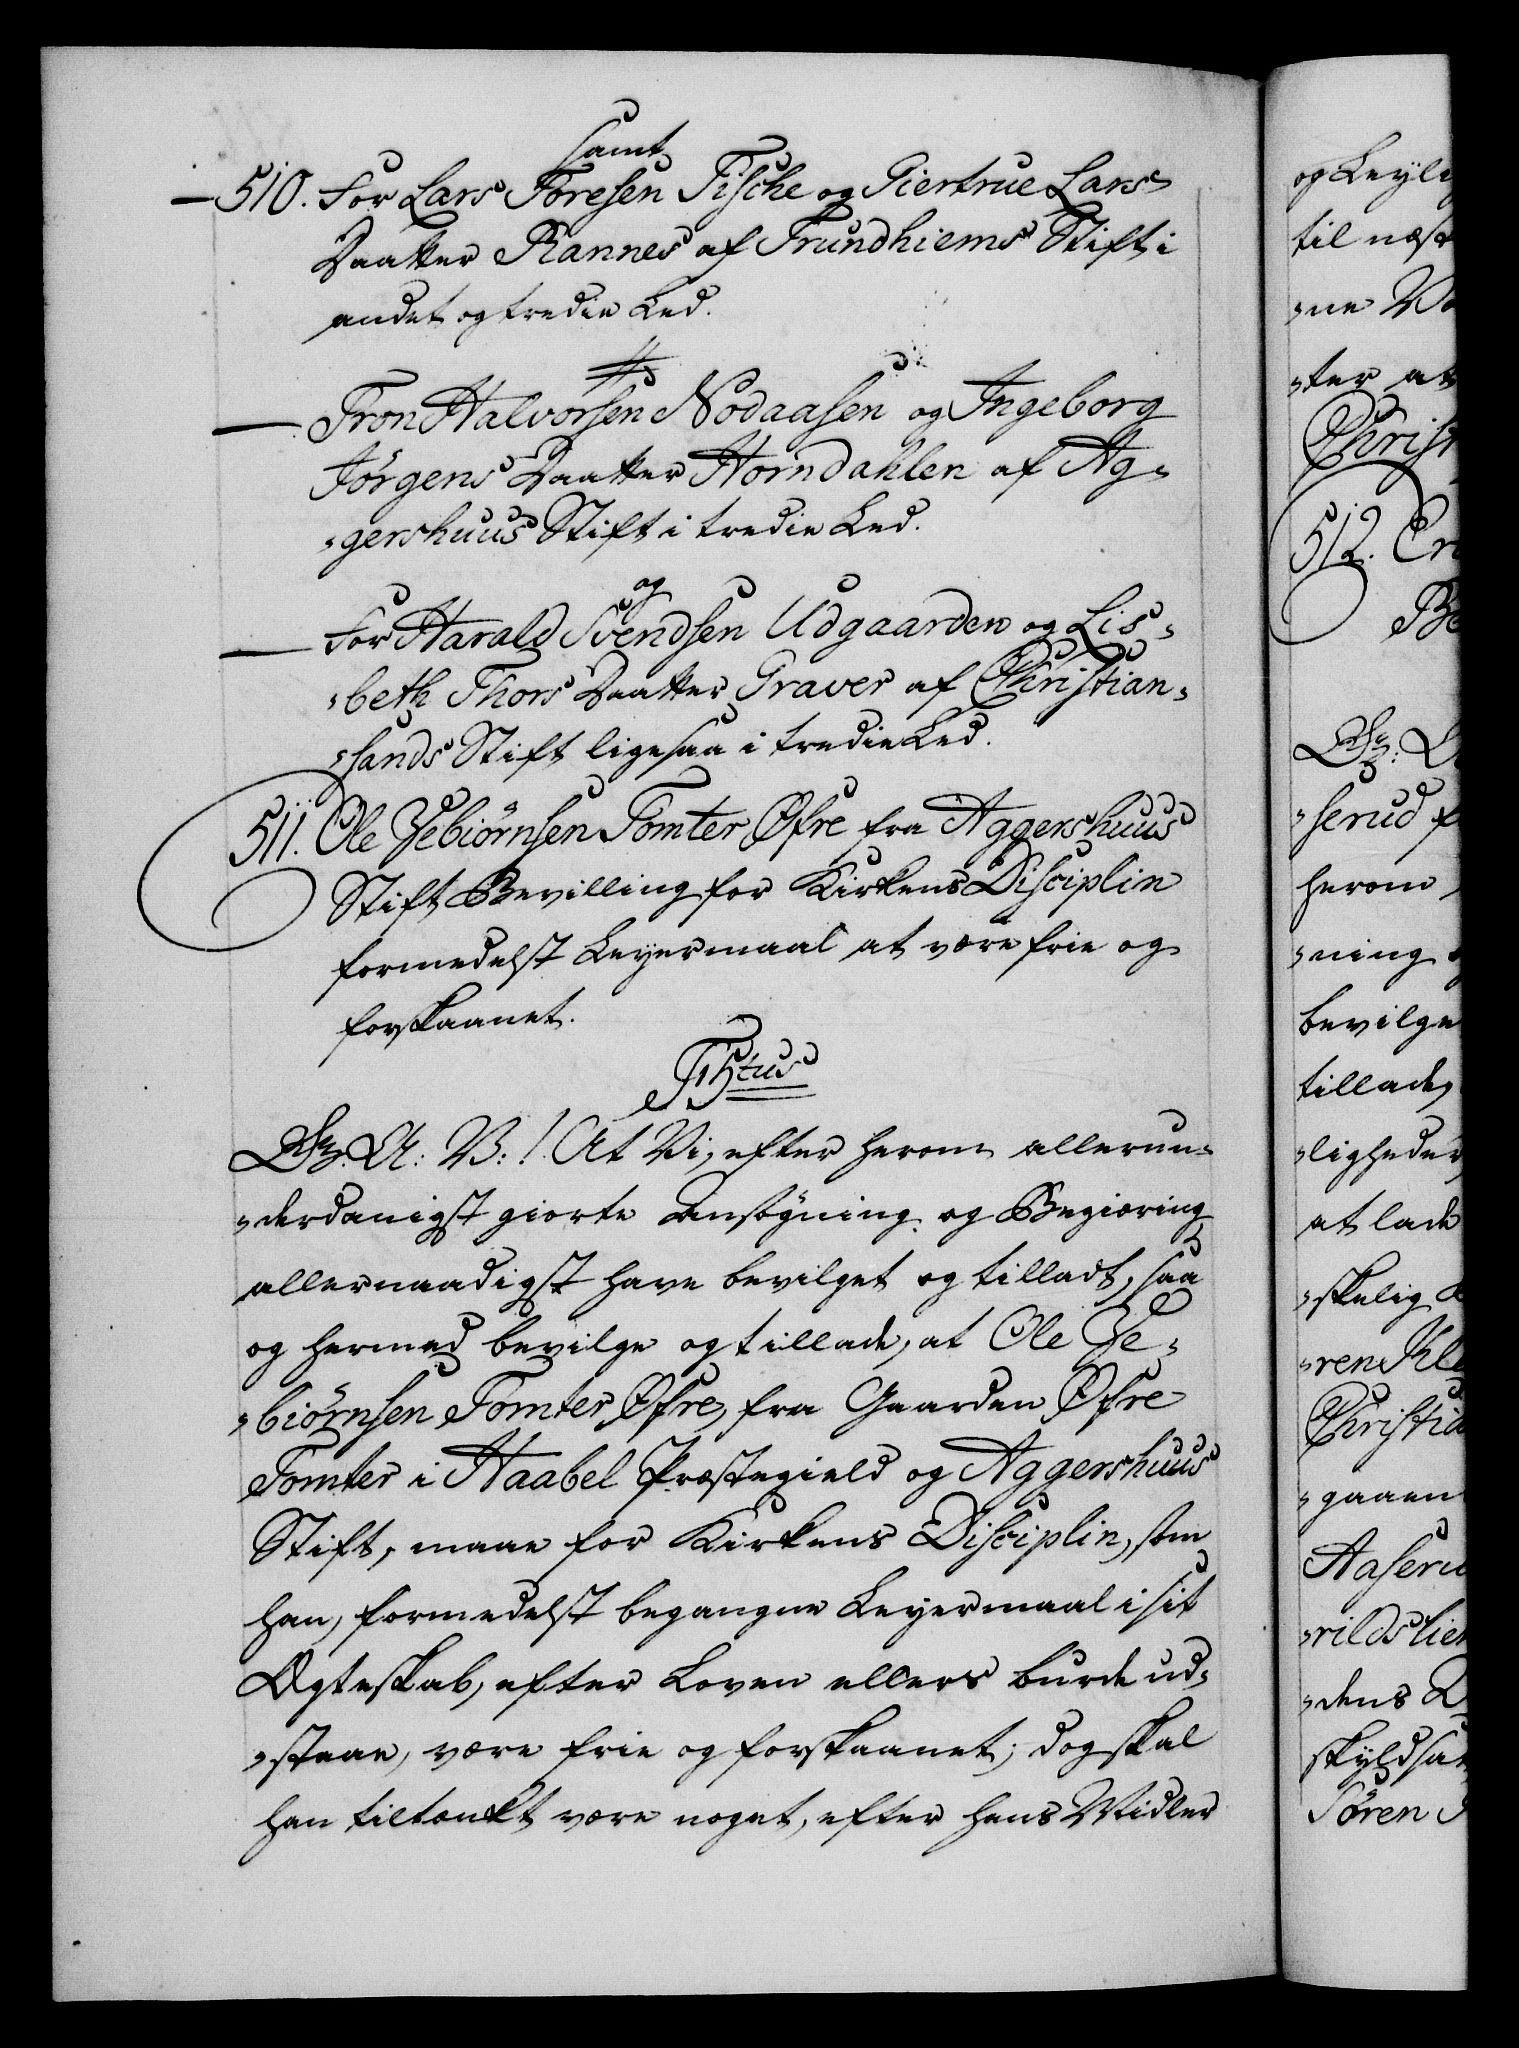 samt
510. For Lars Toresen Fische og Giertrue Lars
Daatter Rannes af Trundhiems Stift i
andet og tredie Led.
Tron Halvorsen Nodaasen og Ingeborg
Jörgens Daatter Horndahlen af Ag-
gershuus Stift i tredie Led.
og
For Harald Svendsen Udgaarden og Lis-
beth Thors Daatter Graver af Christian-
sands Stift ligesaa i tredie Led.
511. Ole Zebiörnsen Tomter Øfre fra Aggershuus
Stift Bevilling for Kirkens Disciplin
formedelst Leyermaal at være frie og
forskaanet.
G. A. V.! At Vi, efter herom allerun-
derdanigst giorte Ansøgning og Begiæring
allernaadigst have bevilget og tilladt, saa
og hermed bevilge og tillade, at Ole Ze-
biörnsen Tomter Øfre, fra Gaarden Øfre
Tomter i Haabel Præstegield og Aggershuus
Stift, maae for Kirkens Disciplin, som
han, formedelst begangne Leyermaal i sit
Ægteskab, efter Loven ellers burde ud-
staae, være frie og forskaanet; dog skal
han tiltænkt være noget, efter hans Midler
og Leyli
til næst
ne
ter at
Christ
512.
serud
herom
ning
bevilge
tillade,
ligheder
at lade
skelig
ren Kle
Christia
gaaen
Aaseru
rilds lien
dens
skyldsat
Sören